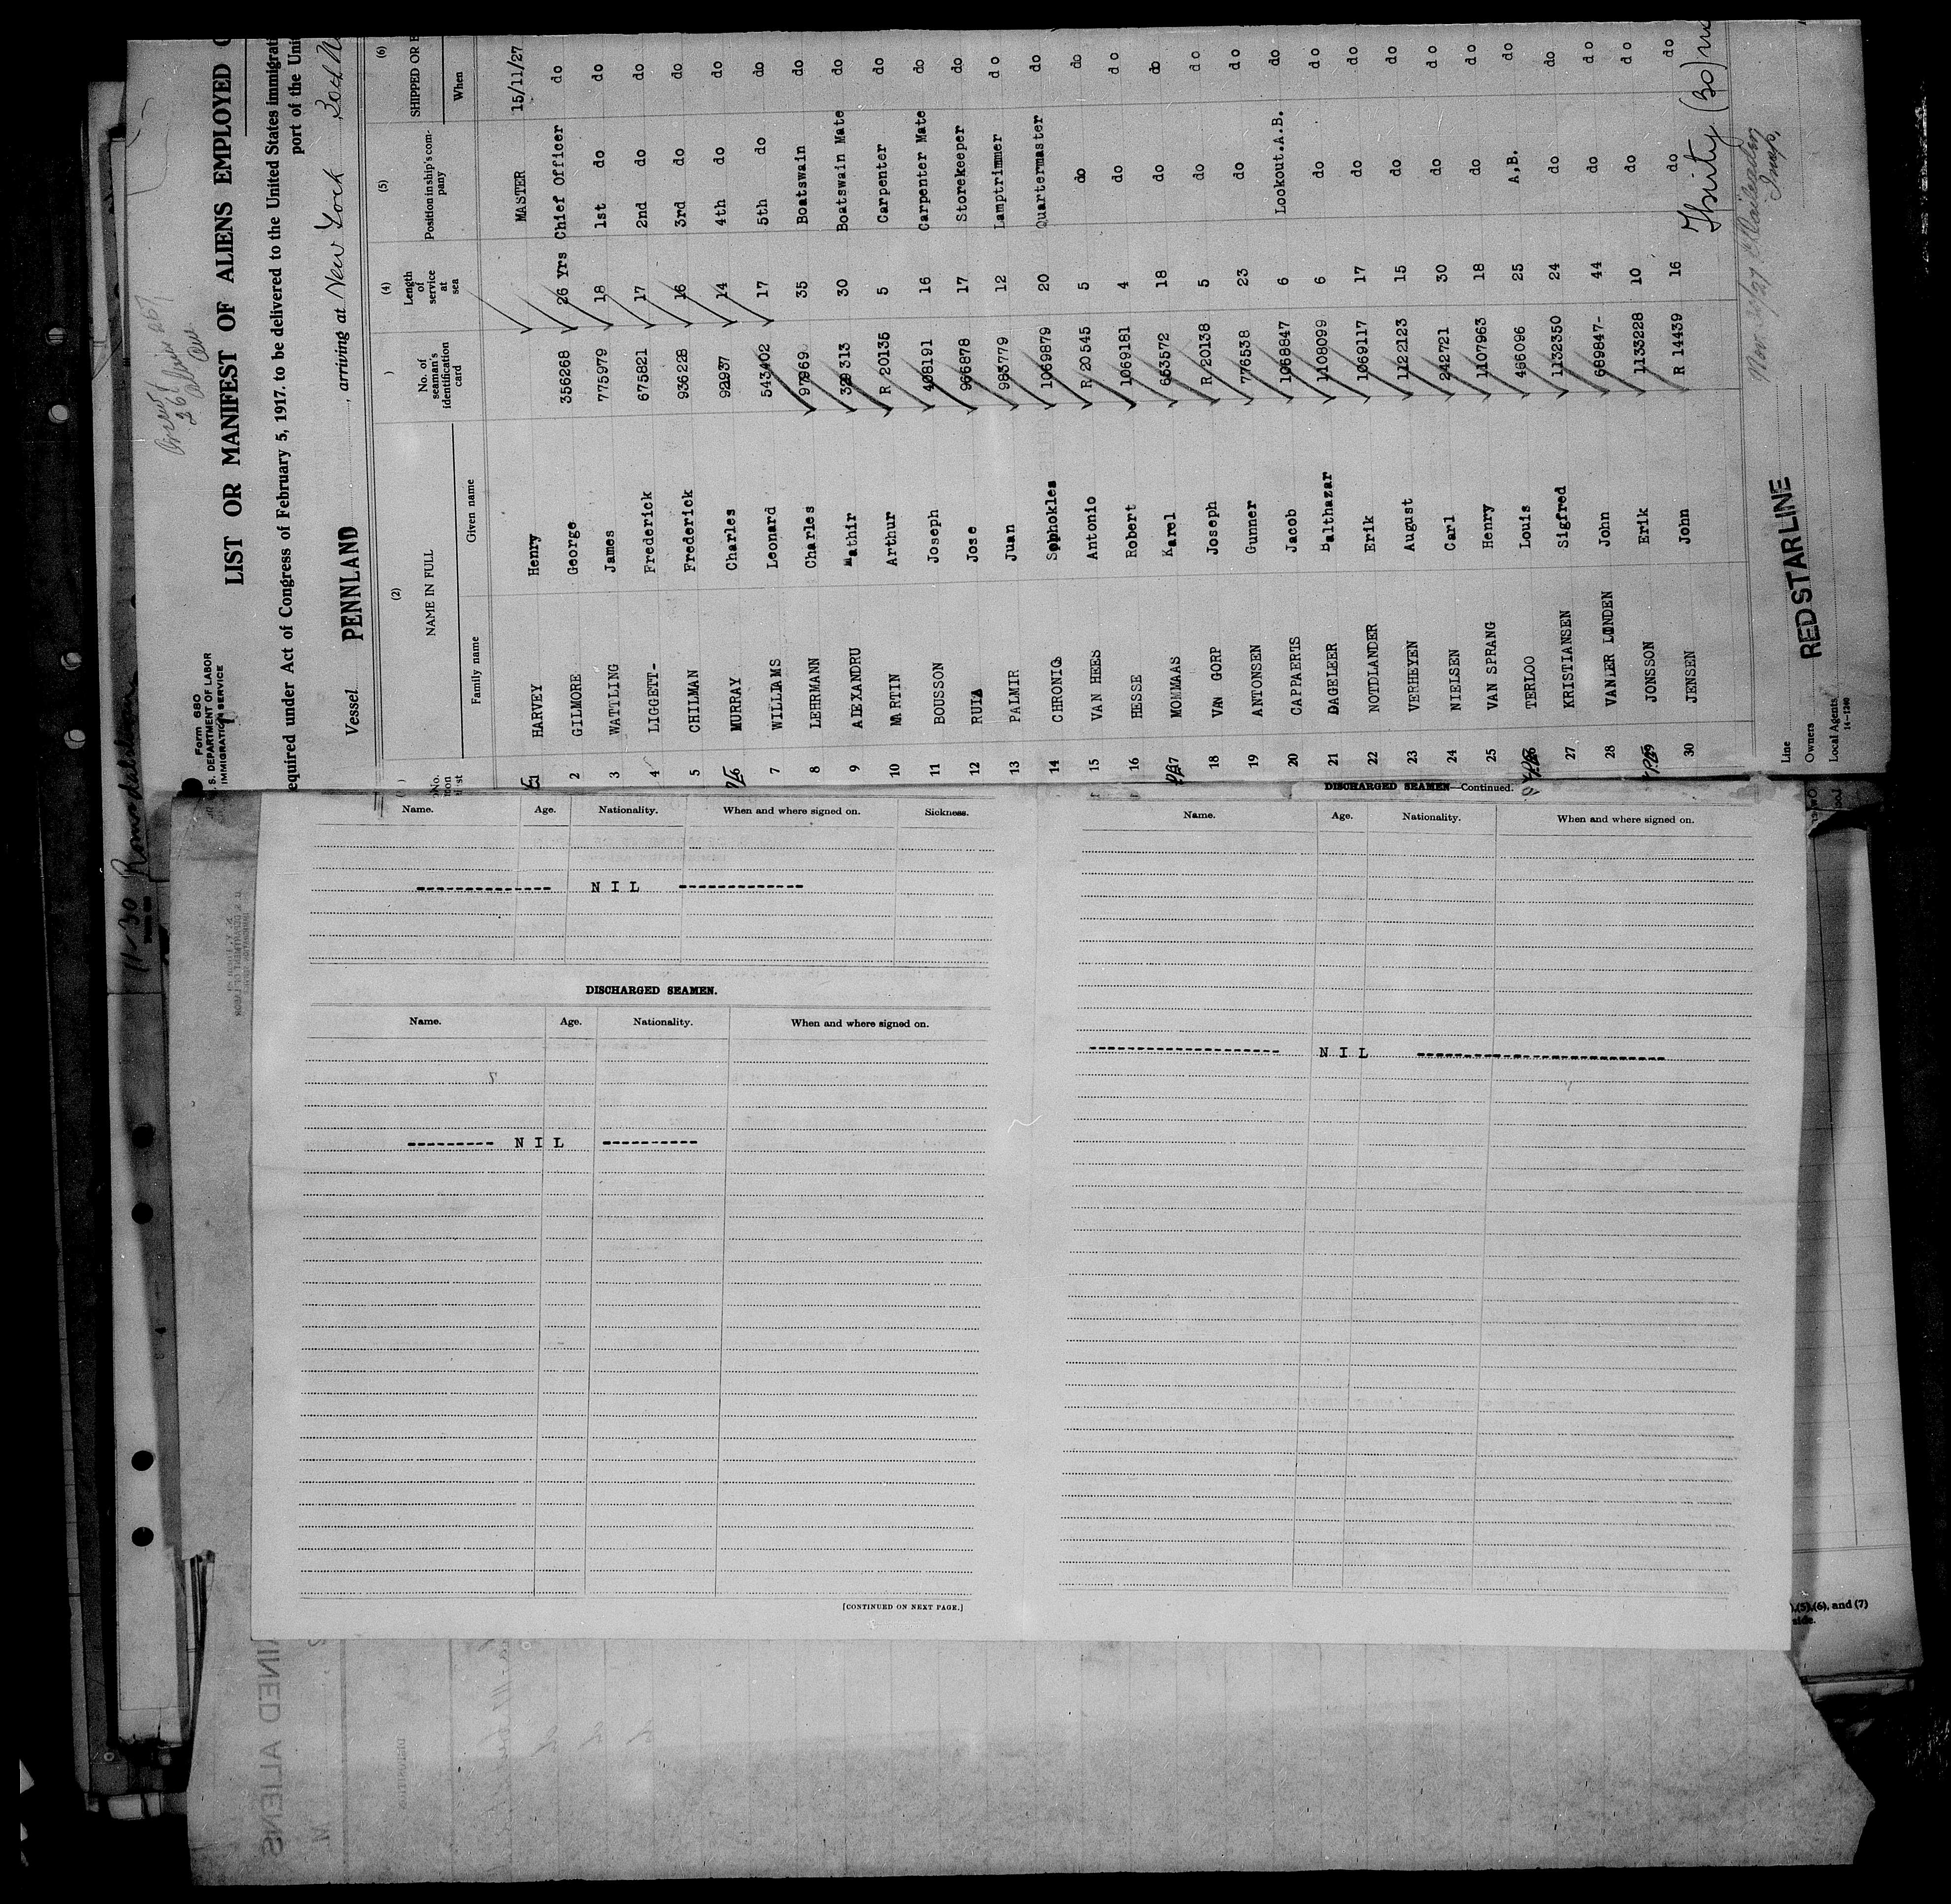 Form 680
S. DEPARTMENT OF LABOR
IMMIGRATION SERVICE
LIST OR MANIFEST OF ALIENS EMPLOYED
equired under Act of Congress of February 5, 1917, to be delivered to the United States immigrati
port of the Unit
Vessel PENNLAND, arriving at New York
(2) ) (4) (5) (6)
NAME IN FULL No. of seaman's identification card Length of service at sea Position in ship's company SHIPPED OR E
Family name Given name When
1 HARVEY Henry MASTER 15/11/27
2 GILMORE George 356268 26 Yrs Chief Officer do
3 WATTLING James 775979 18 1st do do
4 LIGGETT- Frederick 675821 17 2nd do do
5 CHILMAN Frederick 936228 16 3rd do do
6 MURRAY Charles 92937 14 4th do do
7 WILLIAMS Leonard 543402 17 5th do do
8 LEHRMANN Charles 97969 35 Boatswain do
9 AIEXANDRU Mathir 329313 30 Boatswain Mate do
10 MARTIN Arthur R 20135 5 Carpenter do
11 BOUSSON Joseph 408191 16 Carpenter Mate do
12 RUIZ Jose 966878 17 Storekeeper do
13 PALMIR Juan 983779 12 Lamptrimmer do
14 CHRONIS Sophokles 1069879 20 Quartermaster do
15 VAN HEES Antonio R 20545 5 do do
16 HESSE Robert 1069181 4 do do
17 MOMMAAS Karel 653572 18 do do
18 VAN GORP Joseph R 20138 5 do do
19 ANTONSEN Gunner 776538 23 do do
20 CAPPAERTS Jacob 1068847 6 Lookout.A.B. do
21 DAGELEER Balthazar 1108099 6 do do
22 NOTDLANDER Erik 1069117 17 do do
23 VERHEYEN August 1122123 15 do do
24 NIELSEN Carl 242721 30 do do
25 VAN SPRANG Henry 1107963 18 do do
26 TERLOO Louis 466096 25 A.B. do
27 KRISTIANSEN Sigfred 1132350 24 do do
28 VANDER LINDEN John 669847- 44 do do
29 JONSSON Erik 1133228 10 do do
30 JENSEN John R 14439 16 do do
Thirty (30)
Line RED STAR LINE
Owners
Local Agents
14-1240
11-30
Name. Age. Nationality. When and where signed on. Sickness.
------------- NIL -------------
DISCHARGED SEAMEN.
Name. Age. Nationality. When and where signed on.
--------- NIL ----------
[CONTINUED ON NEXT PAGE.]
DISCHARGED SEAMEN—Continued.
Name. Age. Nationality. When and where signed on.
------------------- NIL -------------------------
),(5),(6), and (7)
side.